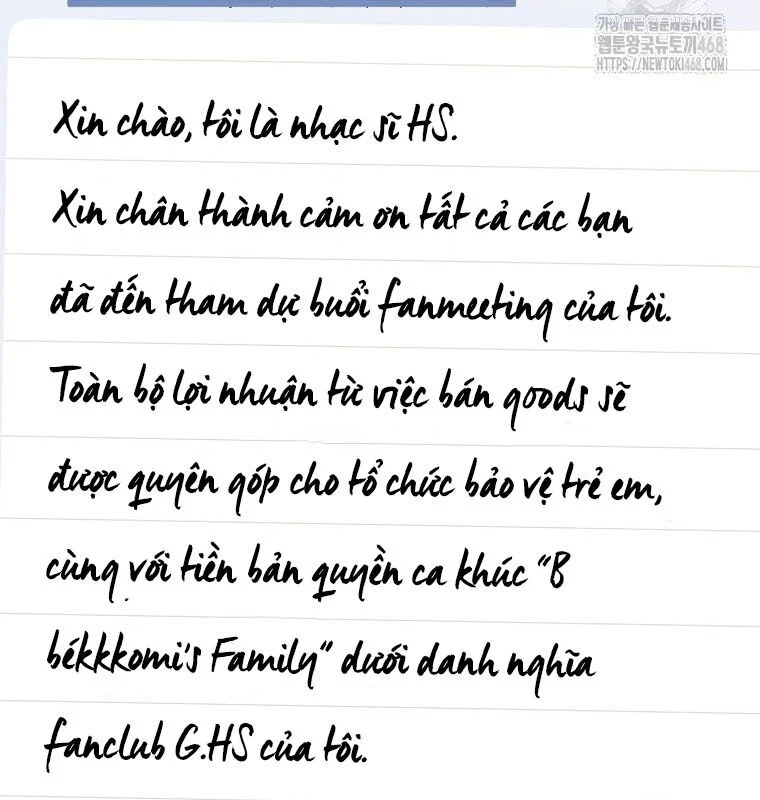 가장 빠른 웹툰제공사이트
웹툰왕국뉴토끼468
HTTPS://NEWTOKI468.COM
Xin chào, tôi là nhạc sĩ HS.
Xin chân thành cảm ơn tất cả các bạn
đã đến tham dự buổi fanmeeting của tôi.
Toàn bộ lợi nhuận từ việc bán goods sẽ
được quyên góp cho tổ chức bảo vệ trẻ em,
cùng với tiền bản quyền ca khúc "B
békkkomi's Family" dưới danh nghĩa
fanclub G.HS của tôi.